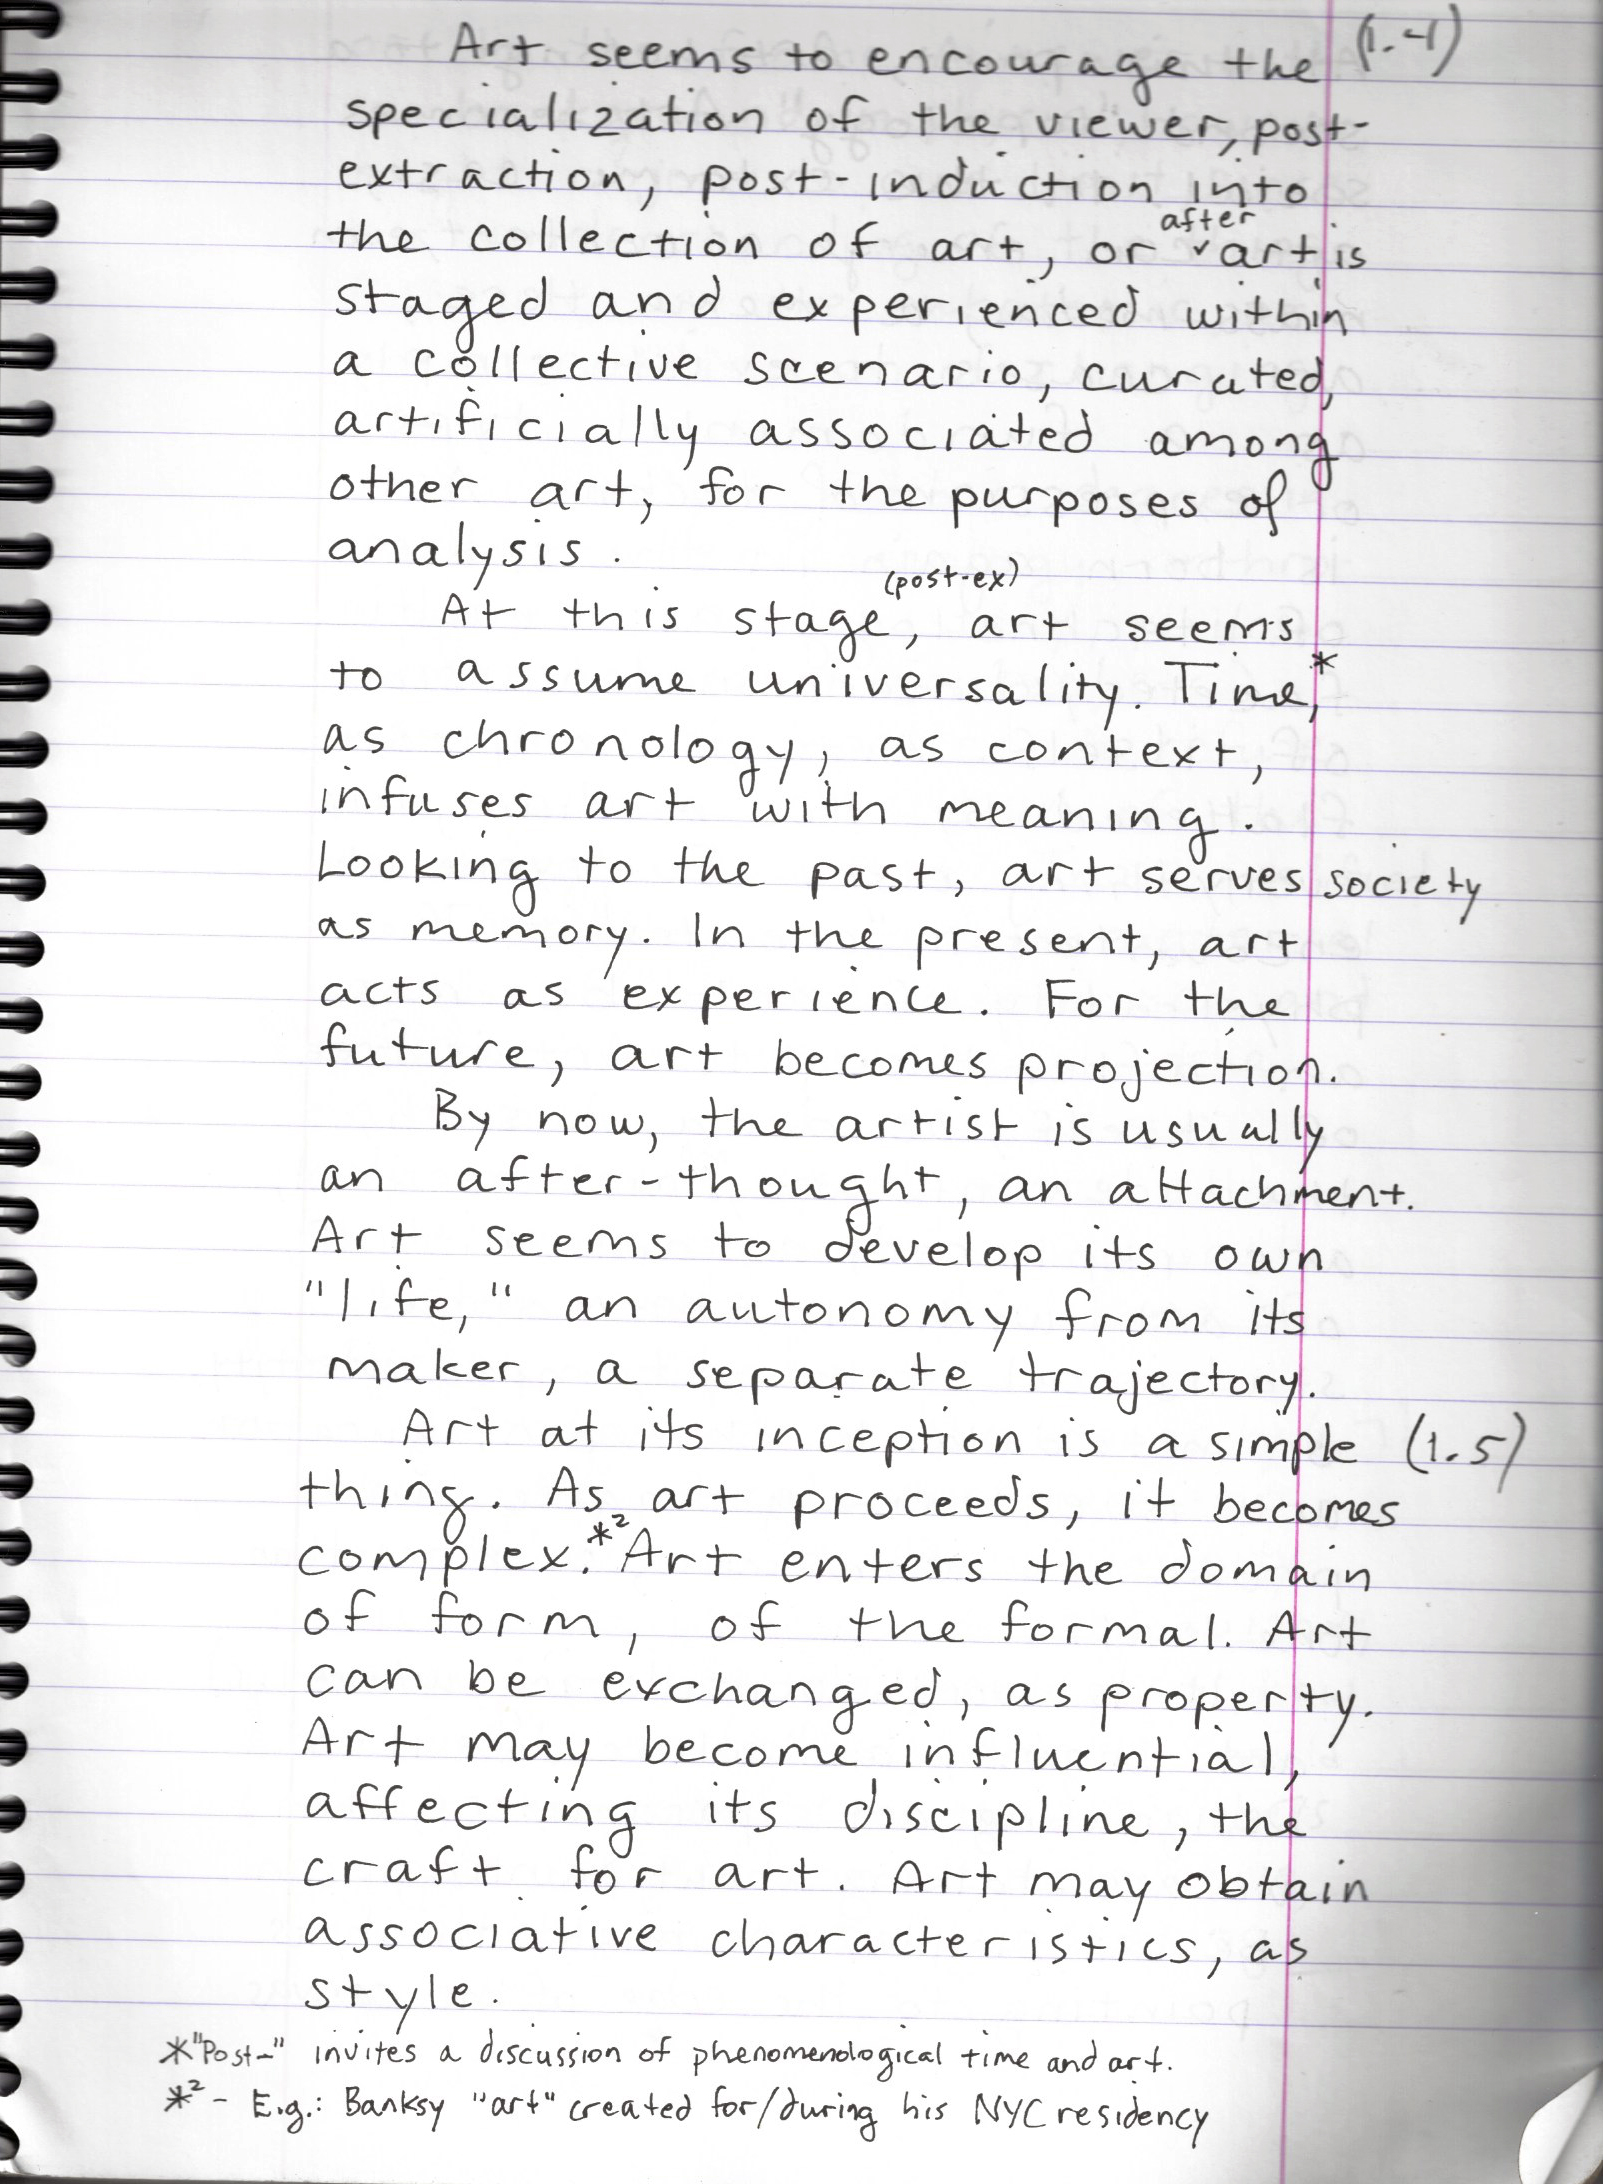 Art seems to encourage the (1.4)
specialization of the viewer, post-
extraction, post-induction into
the collection of art, or ˅after art is
staged and experienced within
a collective scenario, curated,
artificially associated among
other art, for the purposes of
analysis.
At this stage (post-ex), art seems
to assume universality. Time,*
as chronology, as context,
infuses art with meaning.
Looking to the past, art serves society
as memory. In the present, art
acts as experience. For the
future, art becomes projection.
By now, the artist is usually
an after-thought, an attachment.
Art seems to develop its own
"life," an autonomy from its
maker, a separate trajectory.
Art at its inception is a simple (1.5)
thing. As art proceeds, it becomes
complex.*² Art enters the domain
of form, of the formal. Art
can be exchanged, as property.
Art may become influential,
affecting its discipline, the
craft for art. Art may obtain
associative characteristics, as
style.
*"Post-" invites a discussion of phenomenological time and art.
*² - E.g.: Banksy "art" created for/during his NYC residency